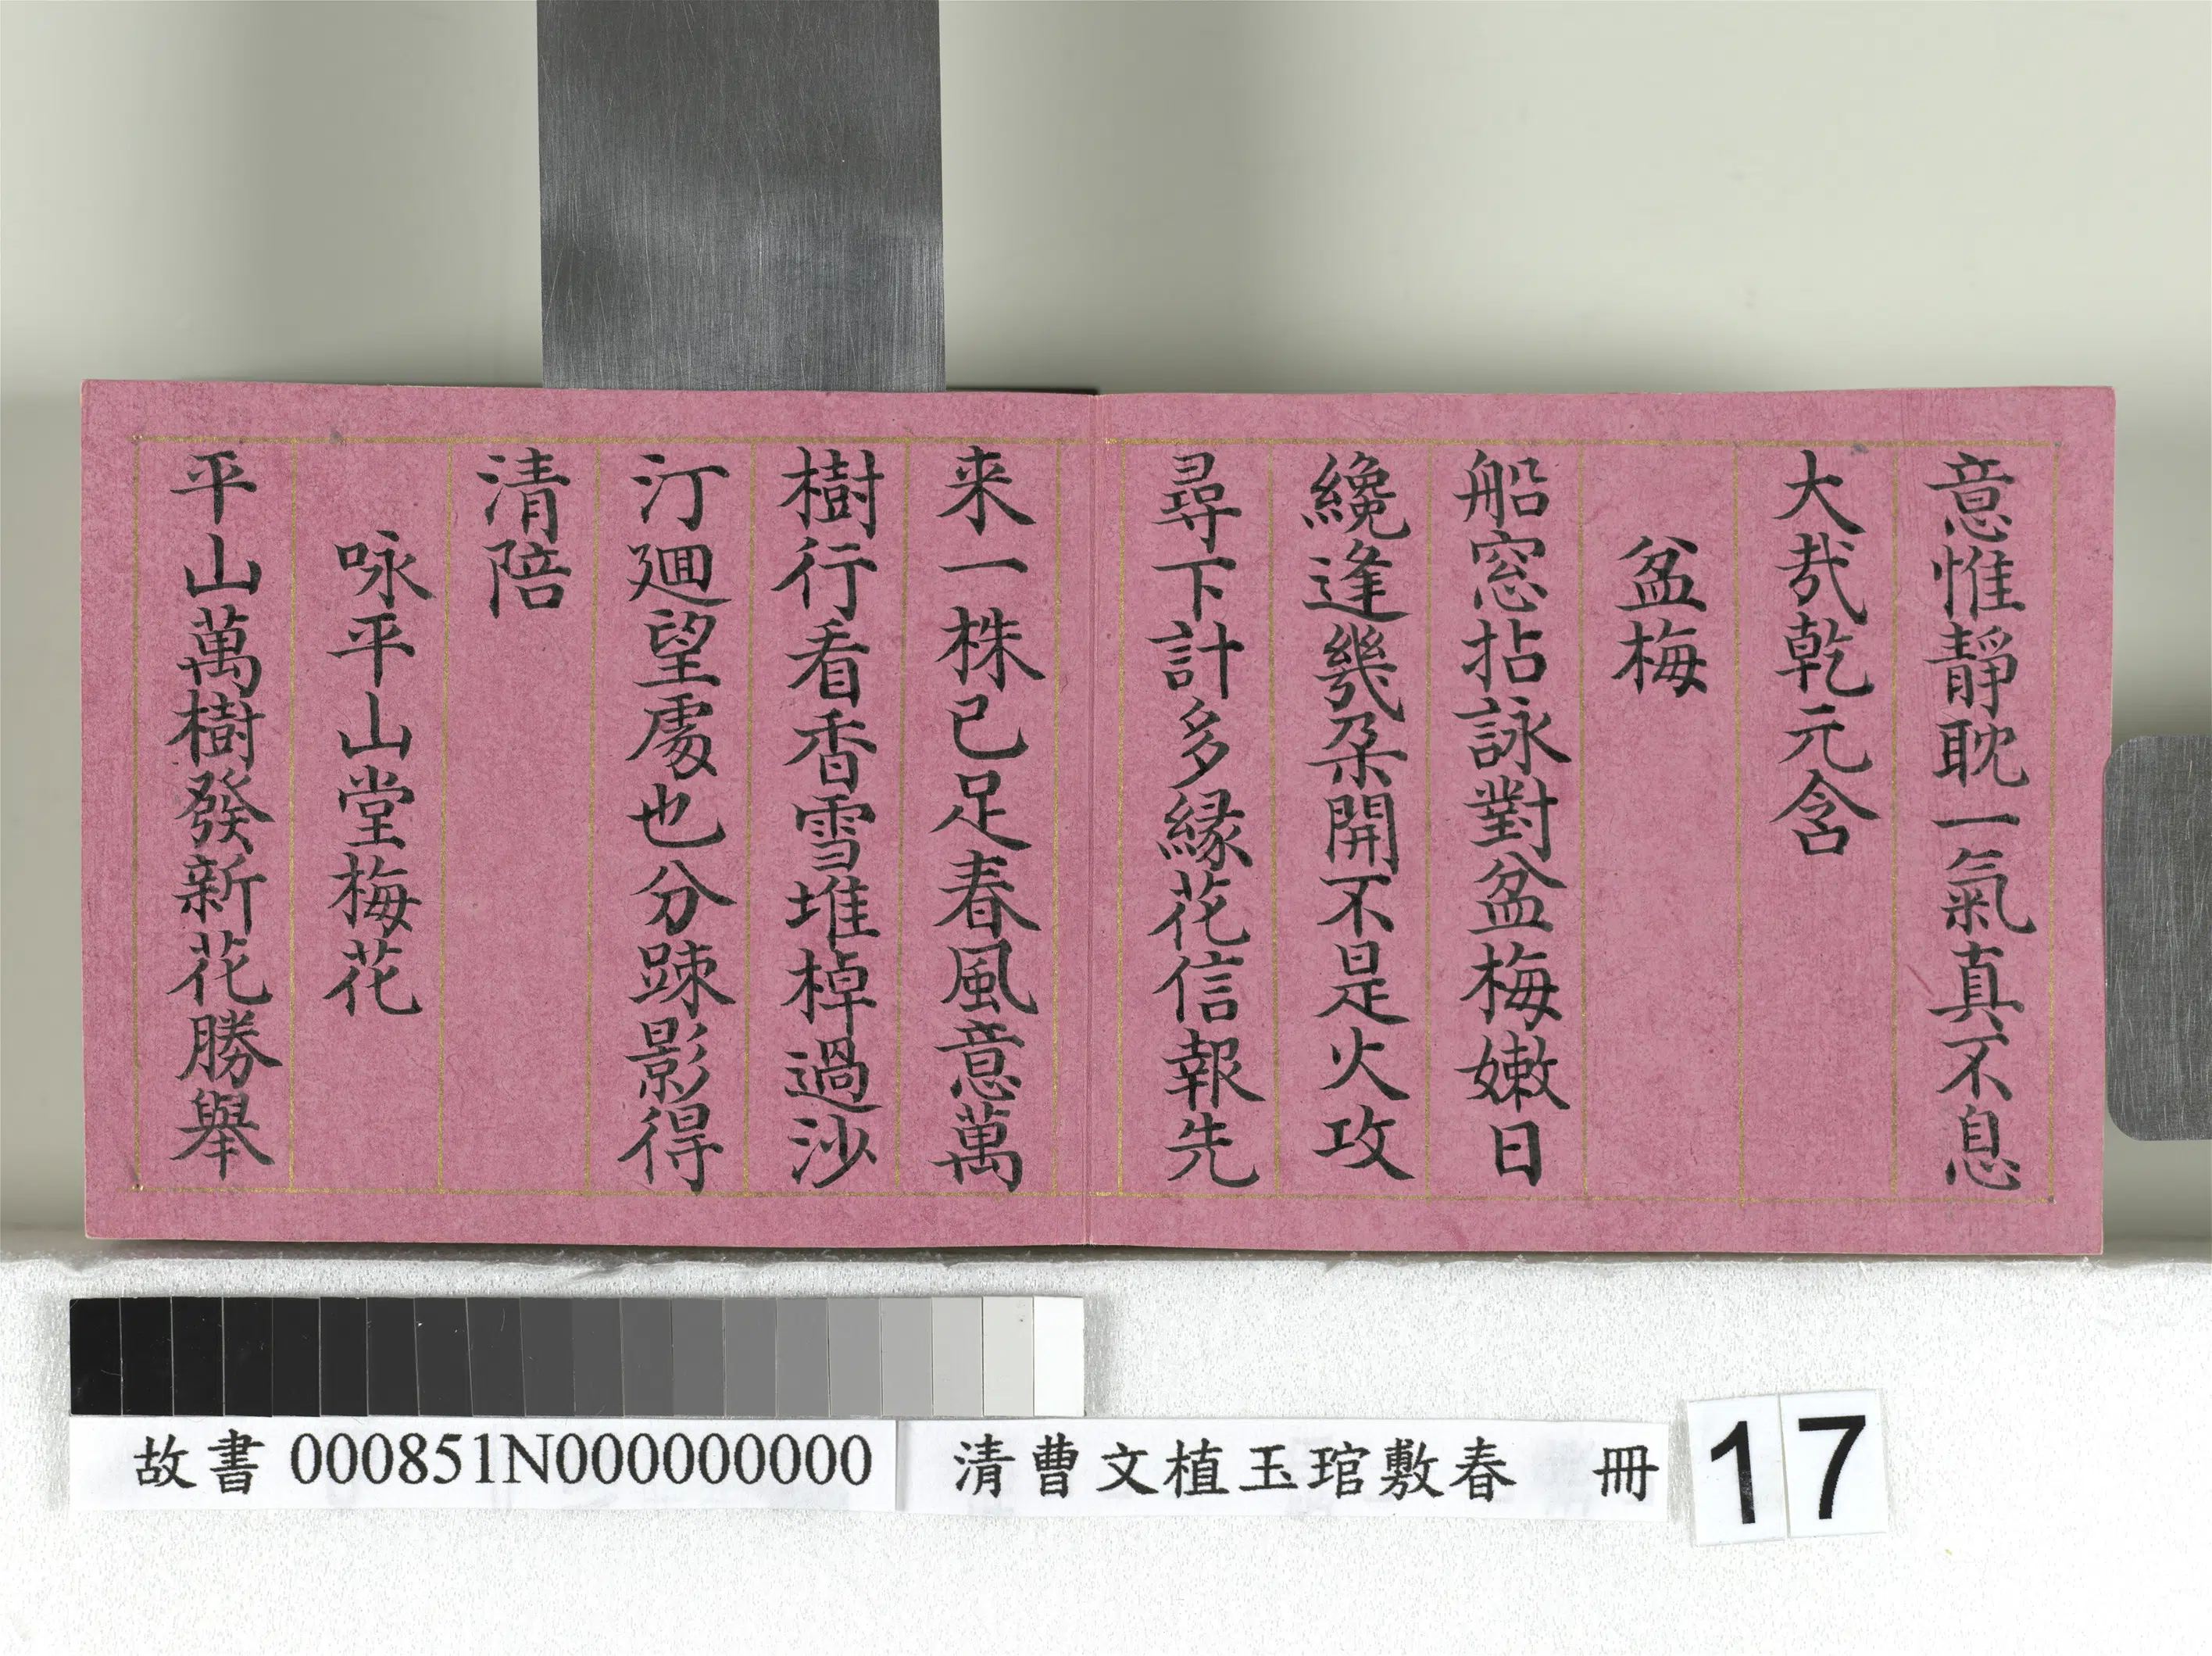 意惟靜耽一氣真不息
大哉乾元含
盆梅
船窓拈詠對盆梅嫩日
纔逢幾朶開不是火攻
尋下計多緣花信報先
来一株已足春風意萬
樹行看香雪堆棹過沙
汀廻望處也分踈影得
清陪
咏平山堂梅花
平山萬樹發新花勝舉
故書 000851N000000000 清曹文植玉琯敷春 冊 17